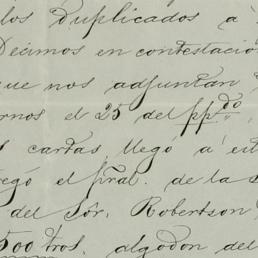 los duplicados a'
Decimos en contestació
que nos adjuntan
rnos el 25 del pp^do
cartas llegó a' est
regó el pral. de la s
del Sór. Robertson
500 tros. algodon del